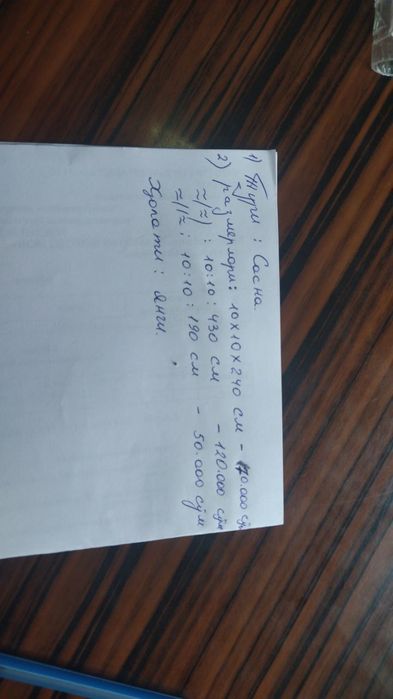 1) Тури : Сосна.
2) размерлари: 10х10х240 см - 70.000 сўм
≈/≈) : 10:10 : 430 см - 120.000 сўм
≈//≈ : 10:10 : 190 см - 50.000 сўм
Ҳолати : янги.